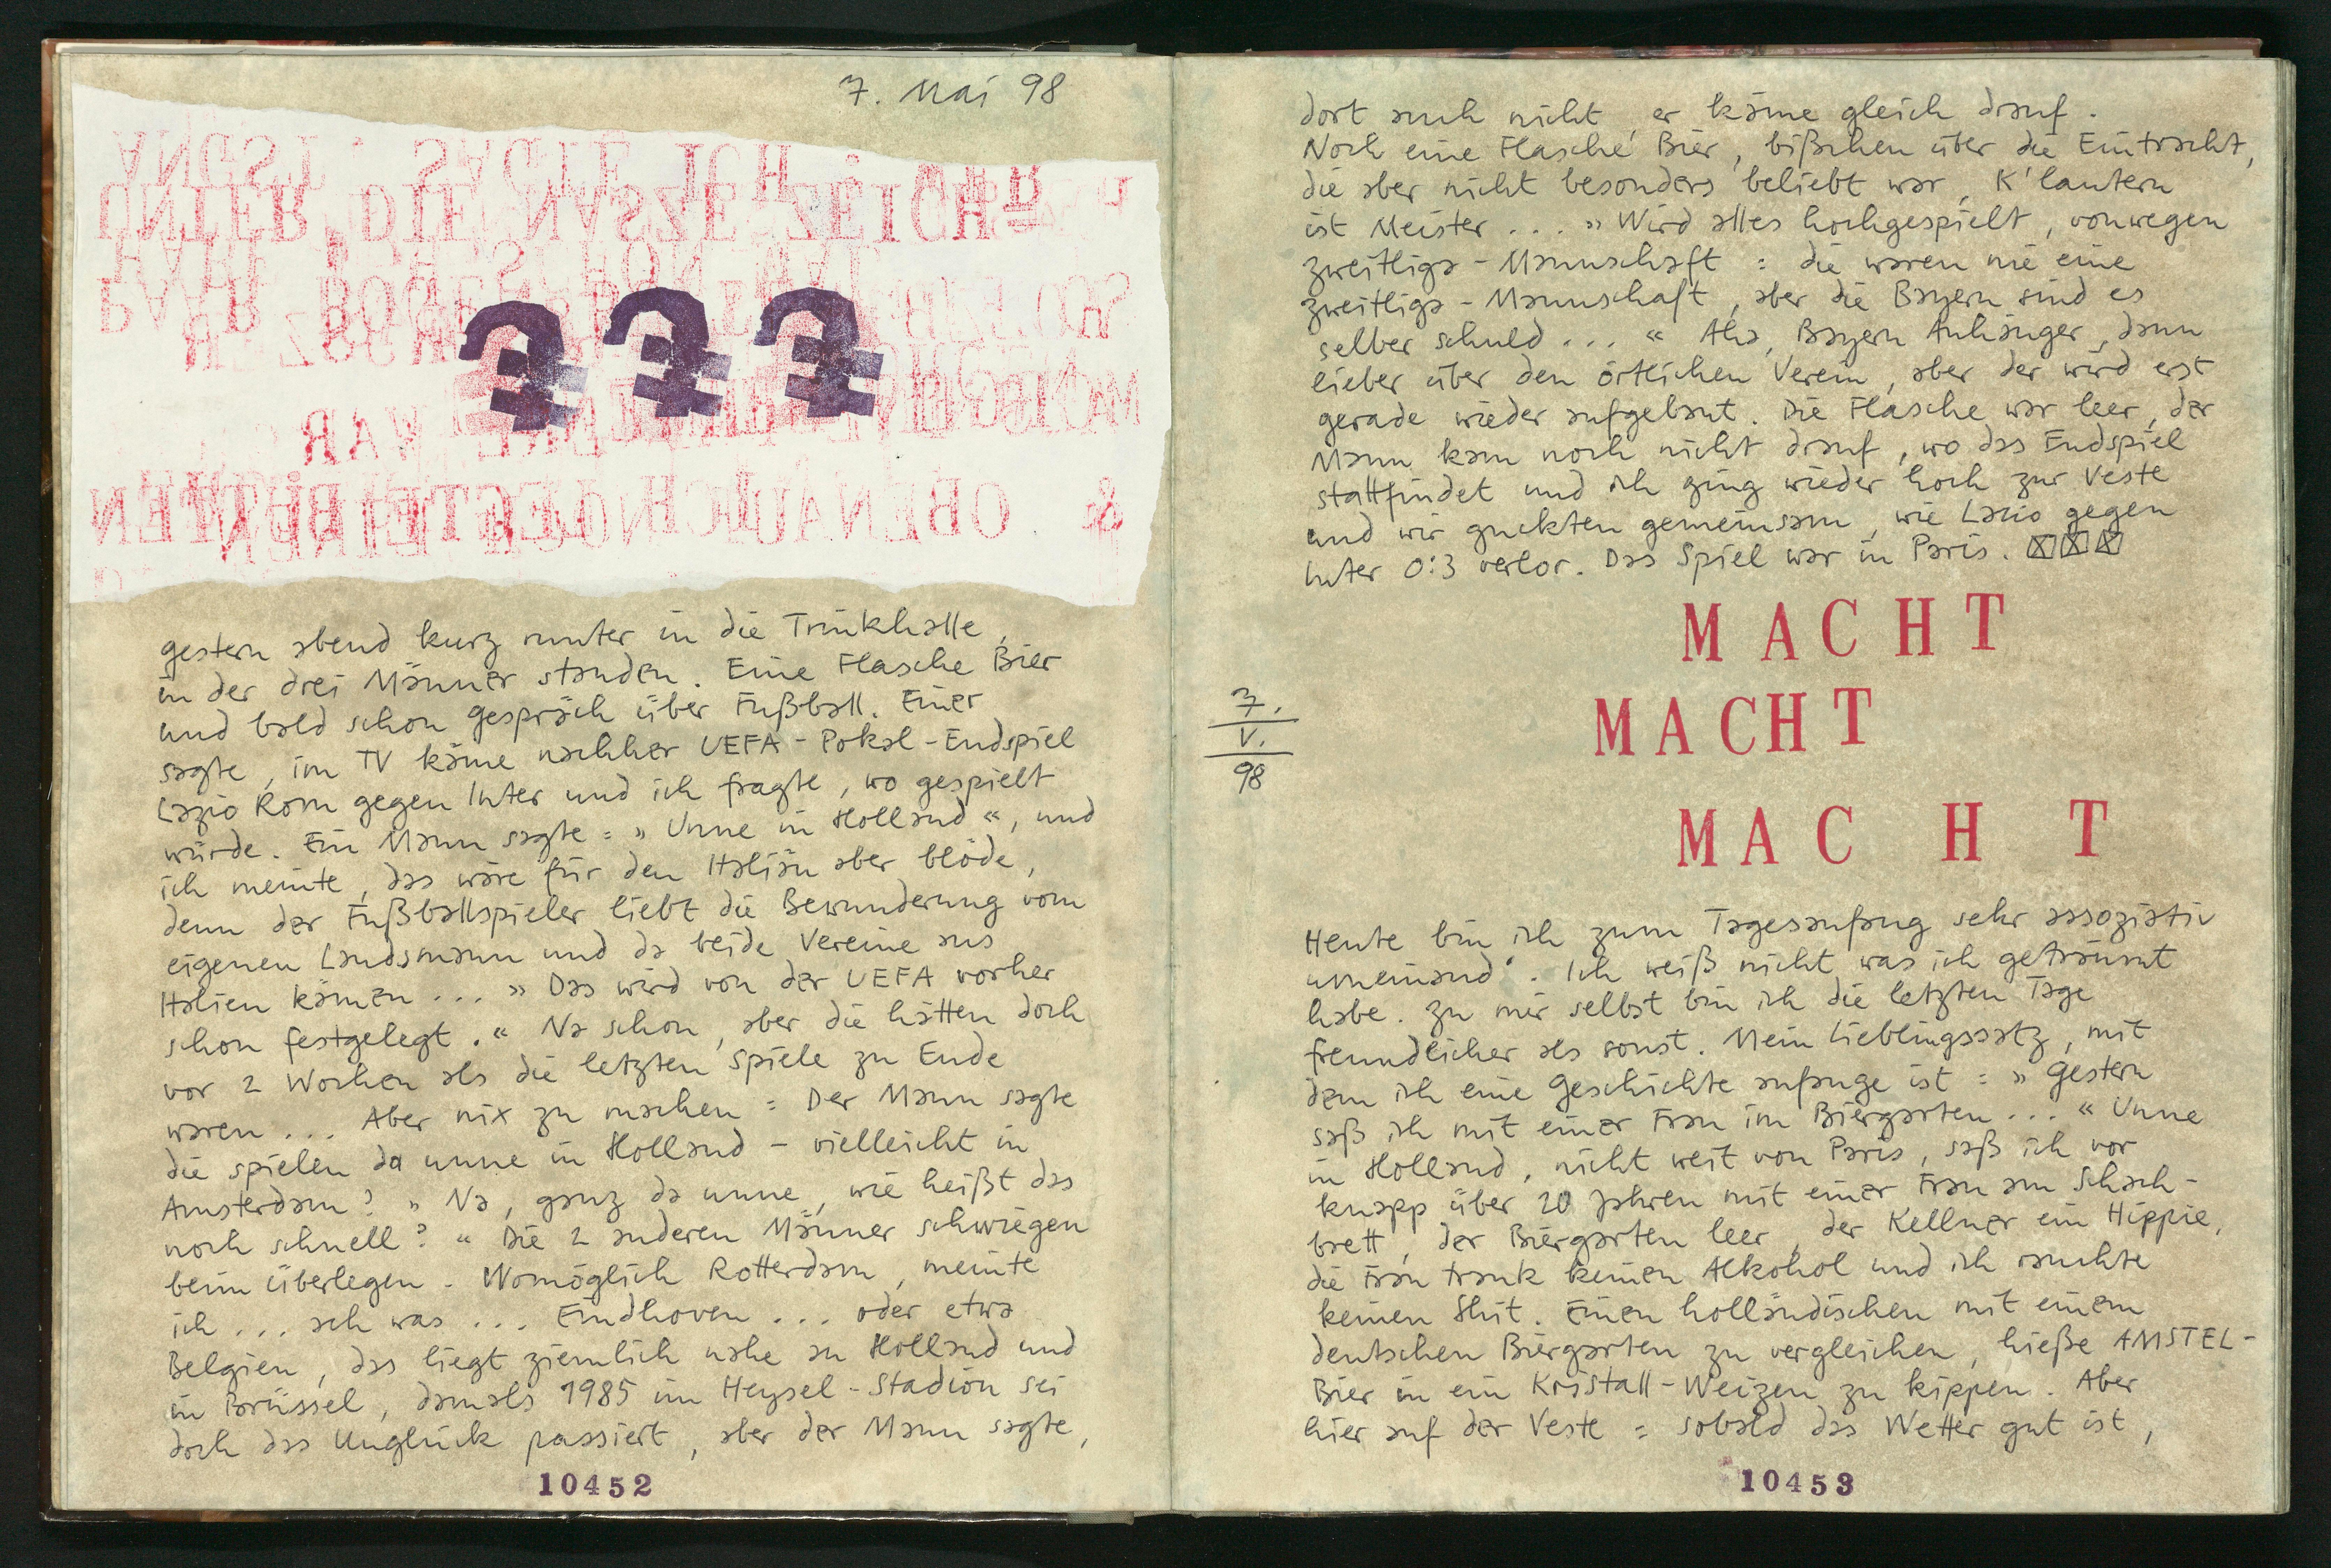 7. Mai 98
ANGST, SAGTE ICH
UNTER DIE NASZE ZEICH=
PAAR
WAR
OBEN
&
???
gestern abend kurz runter in die Trinkhalle,
in der drei Männer standen. Eine Flasche Bier
und bald schon Gespräch über Fußball. Einer
sagte, im TV käme nachher UEFA-Pokal-Endspiel
Lazio Rom gegen Inter und ich fragte, wo gespielt
würde. Ein Mann sagte = » Unne in Holland «, und
ich meinte, das wäre für den Italiän aber blöde,
denn der Fußballspieler liebt die Bewunderung vom
eigenen Landsmann und da beide Vereine aus
Italien kämen ... » Das wird von der UEFA vorher
schon festgelegt. « Na schon, aber die hätten doch
vor 2 Wochen als die letzten Spiele zu Ende
waren ... Aber nix zu machen = Der Mann sagte
die spielen da unne in Holland - vielleicht in
Amsterdam? » Na, ganz da unne, wie heißt das
noch schnell? « Die 2 anderen Männer schwiegen
beim Überlegen - Womöglich Rotterdam, meinte
ich ... ach was ... Eindhoven ... oder etwa
Belgien, das liegt ziemlich nahe an Holland und
in Brüssel, damals 1985 im Heysel-Stadion sei
doch das Unglück passiert, aber der Mann sagte,
10452
dort auch nicht, er käme gleich drauf.
Noch eine Flasche Bier, bißchen über die Eintracht,
die aber nicht besonders beliebt war, K'lautern
ist Meister ... » Wird alles hochgespielt, vonwegen
zweitliga-Mannschaft = die waren nie eine
zweitliga-Mannschaft, aber die Bayern sind es
selber schuld ... « Aha, Bayern Anhänger, dann
lieber über den örtlichen Verein, aber der wird erst
gerade wieder aufgebaut. Die Flasche war leer, der
Mann kam noch nicht drauf, wo das Endspiel
stattfindet und ich ging wieder hoch zur Veste
und wir guckten gemeinsam, wie Lazio gegen
Inter 0:3 verlor. Das Spiel war in Paris. ☒☒☒
MACHT
MACHT
MACHT
7.
V.
98
Heute bin ich zum Tagesanfang sehr assoziativ
unneinand'. Ich weiß nicht was ich geträumt
habe. Zu mir selbst bin ich die letzten Tage
freundlicher als sonst. Mein Lieblingssatz, mit
dem ich eine Geschichte anfange ist = » Gestern
saß ich mit einer Frau im Biergarten ... « Unne
in Holland, nicht weit von Paris, saß ich vor
knapp über 20 Jahren mit einer Frau am Schach-
brett, der Biergarten leer, der Kellner ein Hippie,
die Frau trank keinen Alkohol und ich rauchte
keinen Shit. Einen holländischen mit einem
deutschen Biergarten zu vergleichen, hieße AMSTEL-
Bier in ein Kristall-Weizen zu kippen. Aber
hier auf der Veste = sobald das Wetter gut ist,
10453